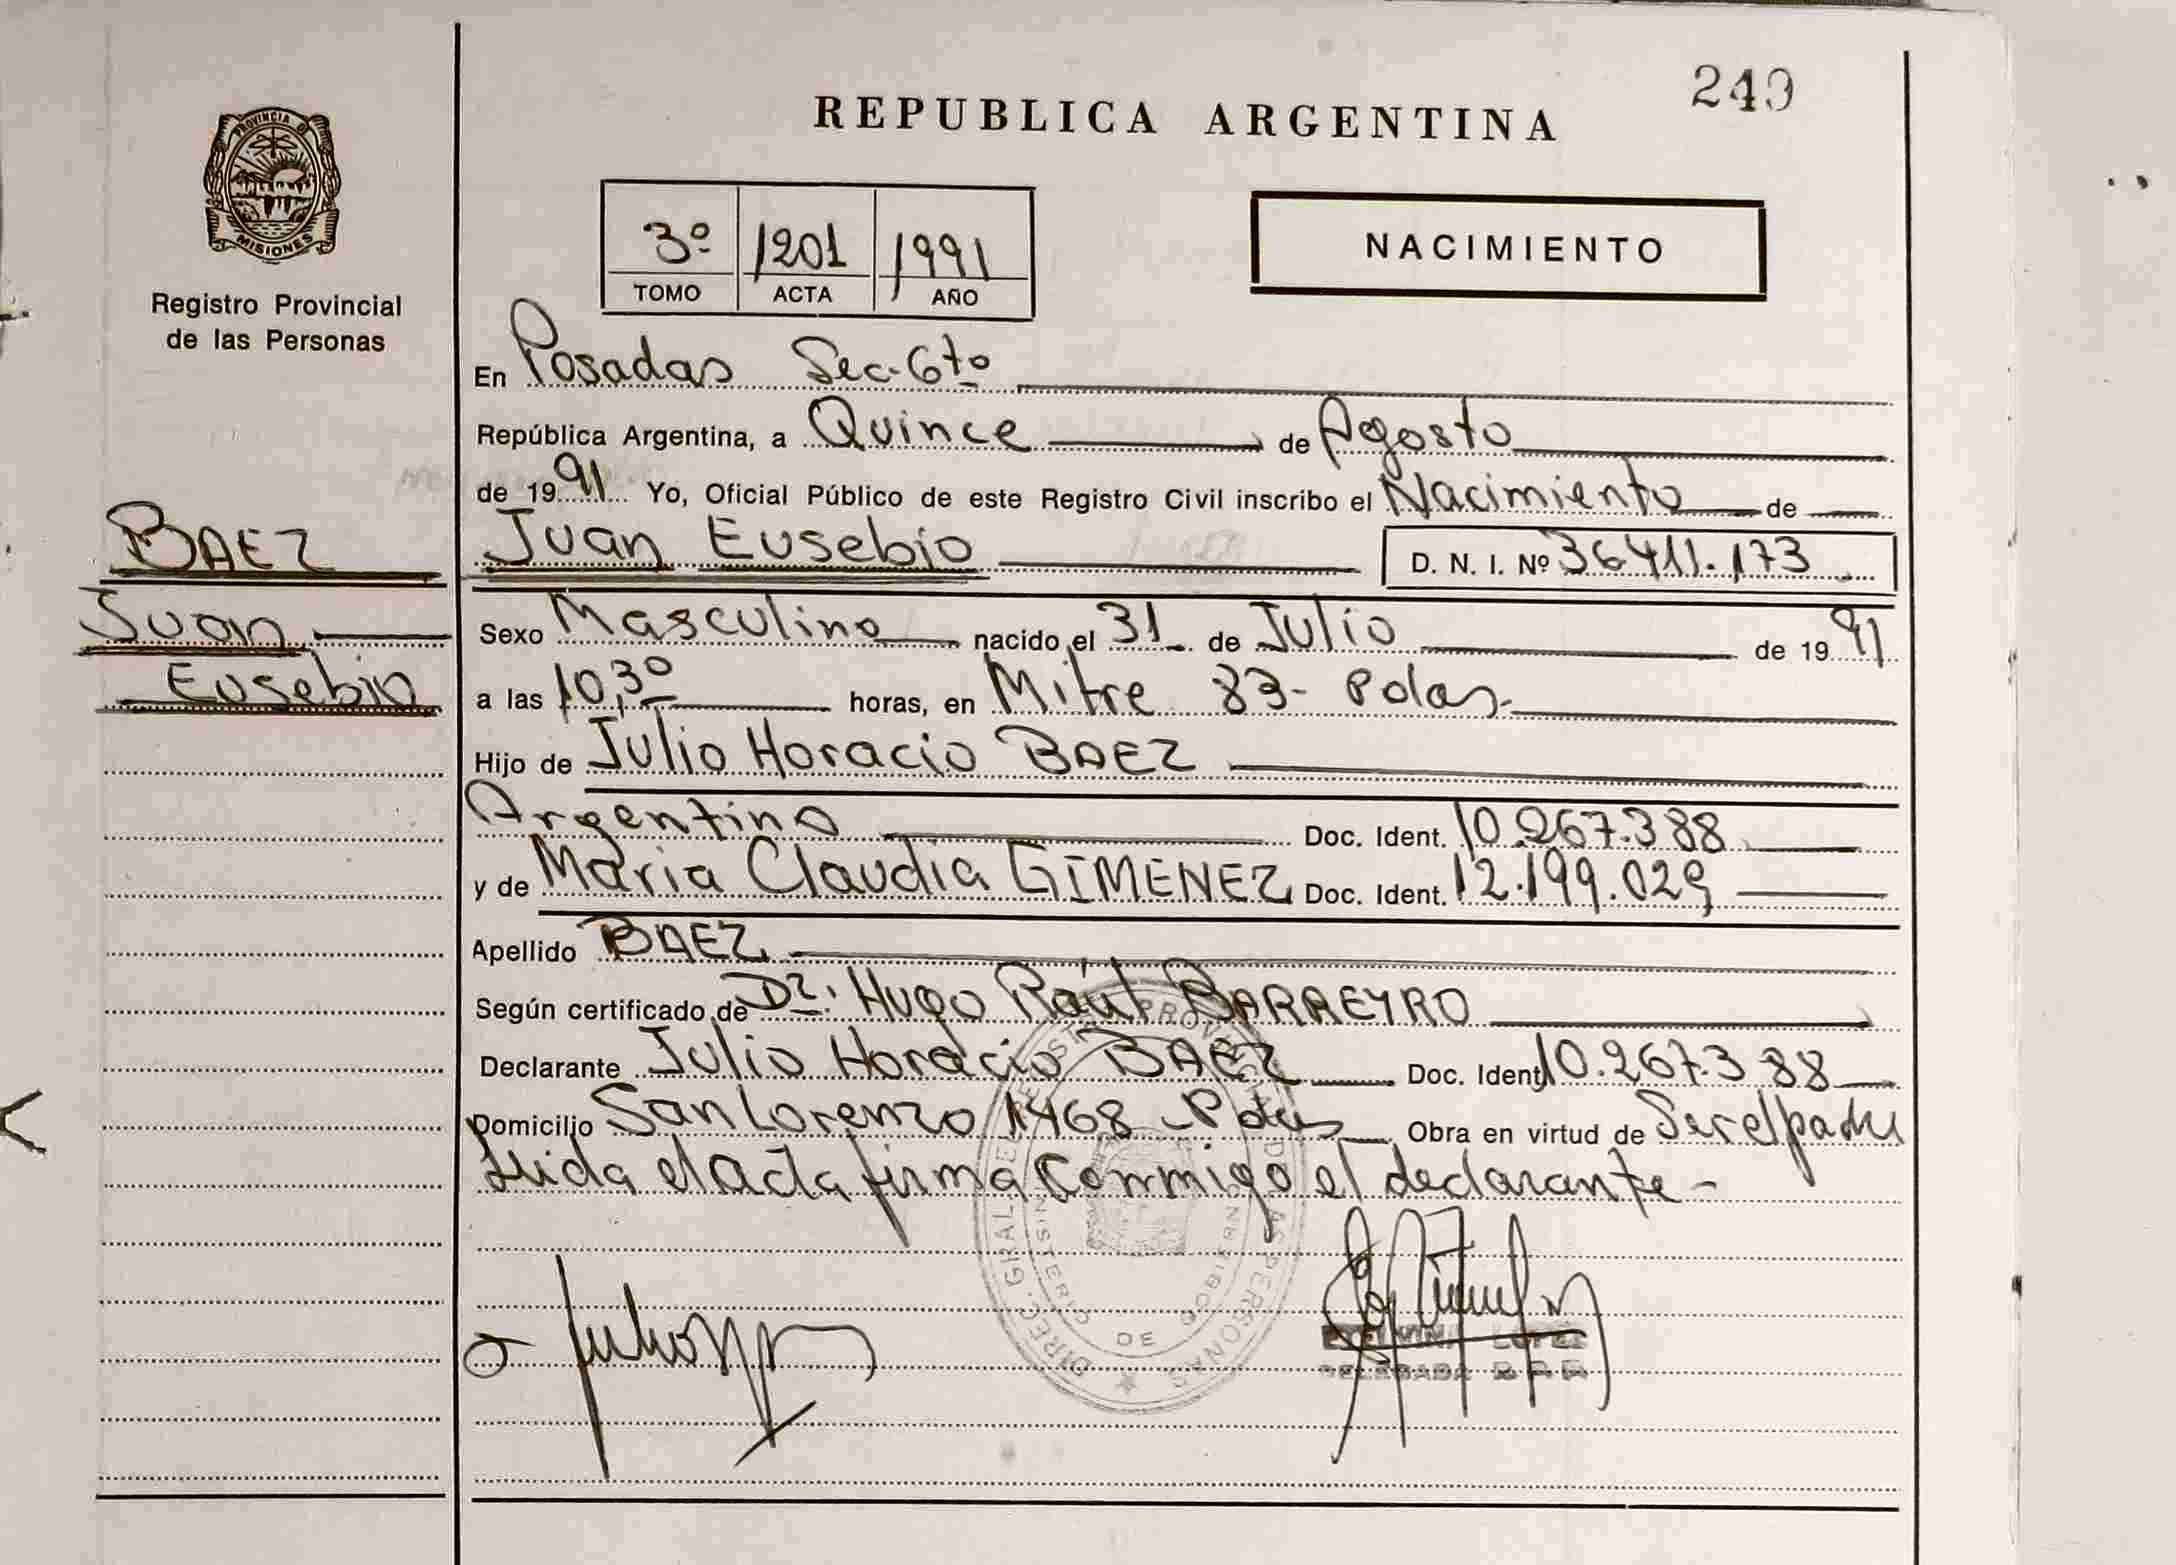 249
REPUBLICA ARGENTINA
PROVINCIA D
MISIONES
Registro Provincial
de las Personas
3º 1201 1991
TOMO ACTA AÑO
NACIMIENTO
En Posadas Sec. 6to
República Argentina, a Quince de Agosto
de 1991 Yo, Oficial Público de este Registro Civil inscribo el Nacimiento de
BAEZ
Juan Eusebio D. N. I. Nº 36411.173
Juan
Eusebio
Sexo Masculino nacido el 31 de Julio de 1991
a las 10,30 horas, en Mitre 83- Pdas.
Hijo de Julio Horacio BAEZ
Argentino Doc. Ident. 10.267.388
y de Maria Claudia GIMENEZ Doc. Ident. 12.199.029
Apellido BAEZ
Según certificado de Dr. Hugo Raúl BARREYRO
Declarante Julio Horacio BAEZ Doc. Ident 10.267.388
Domicilio San Lorenzo 1468 - Pdas Obra en virtud de Ser el padre
Leida el acta firma conmigo el declarante -
DIREC. GRAL. DE REGISTRO PROVINCIAL DE LAS PERSONAS
MINISTERIO DE GOBIERNO
LOPEZ
DELEGADA R.P.P.